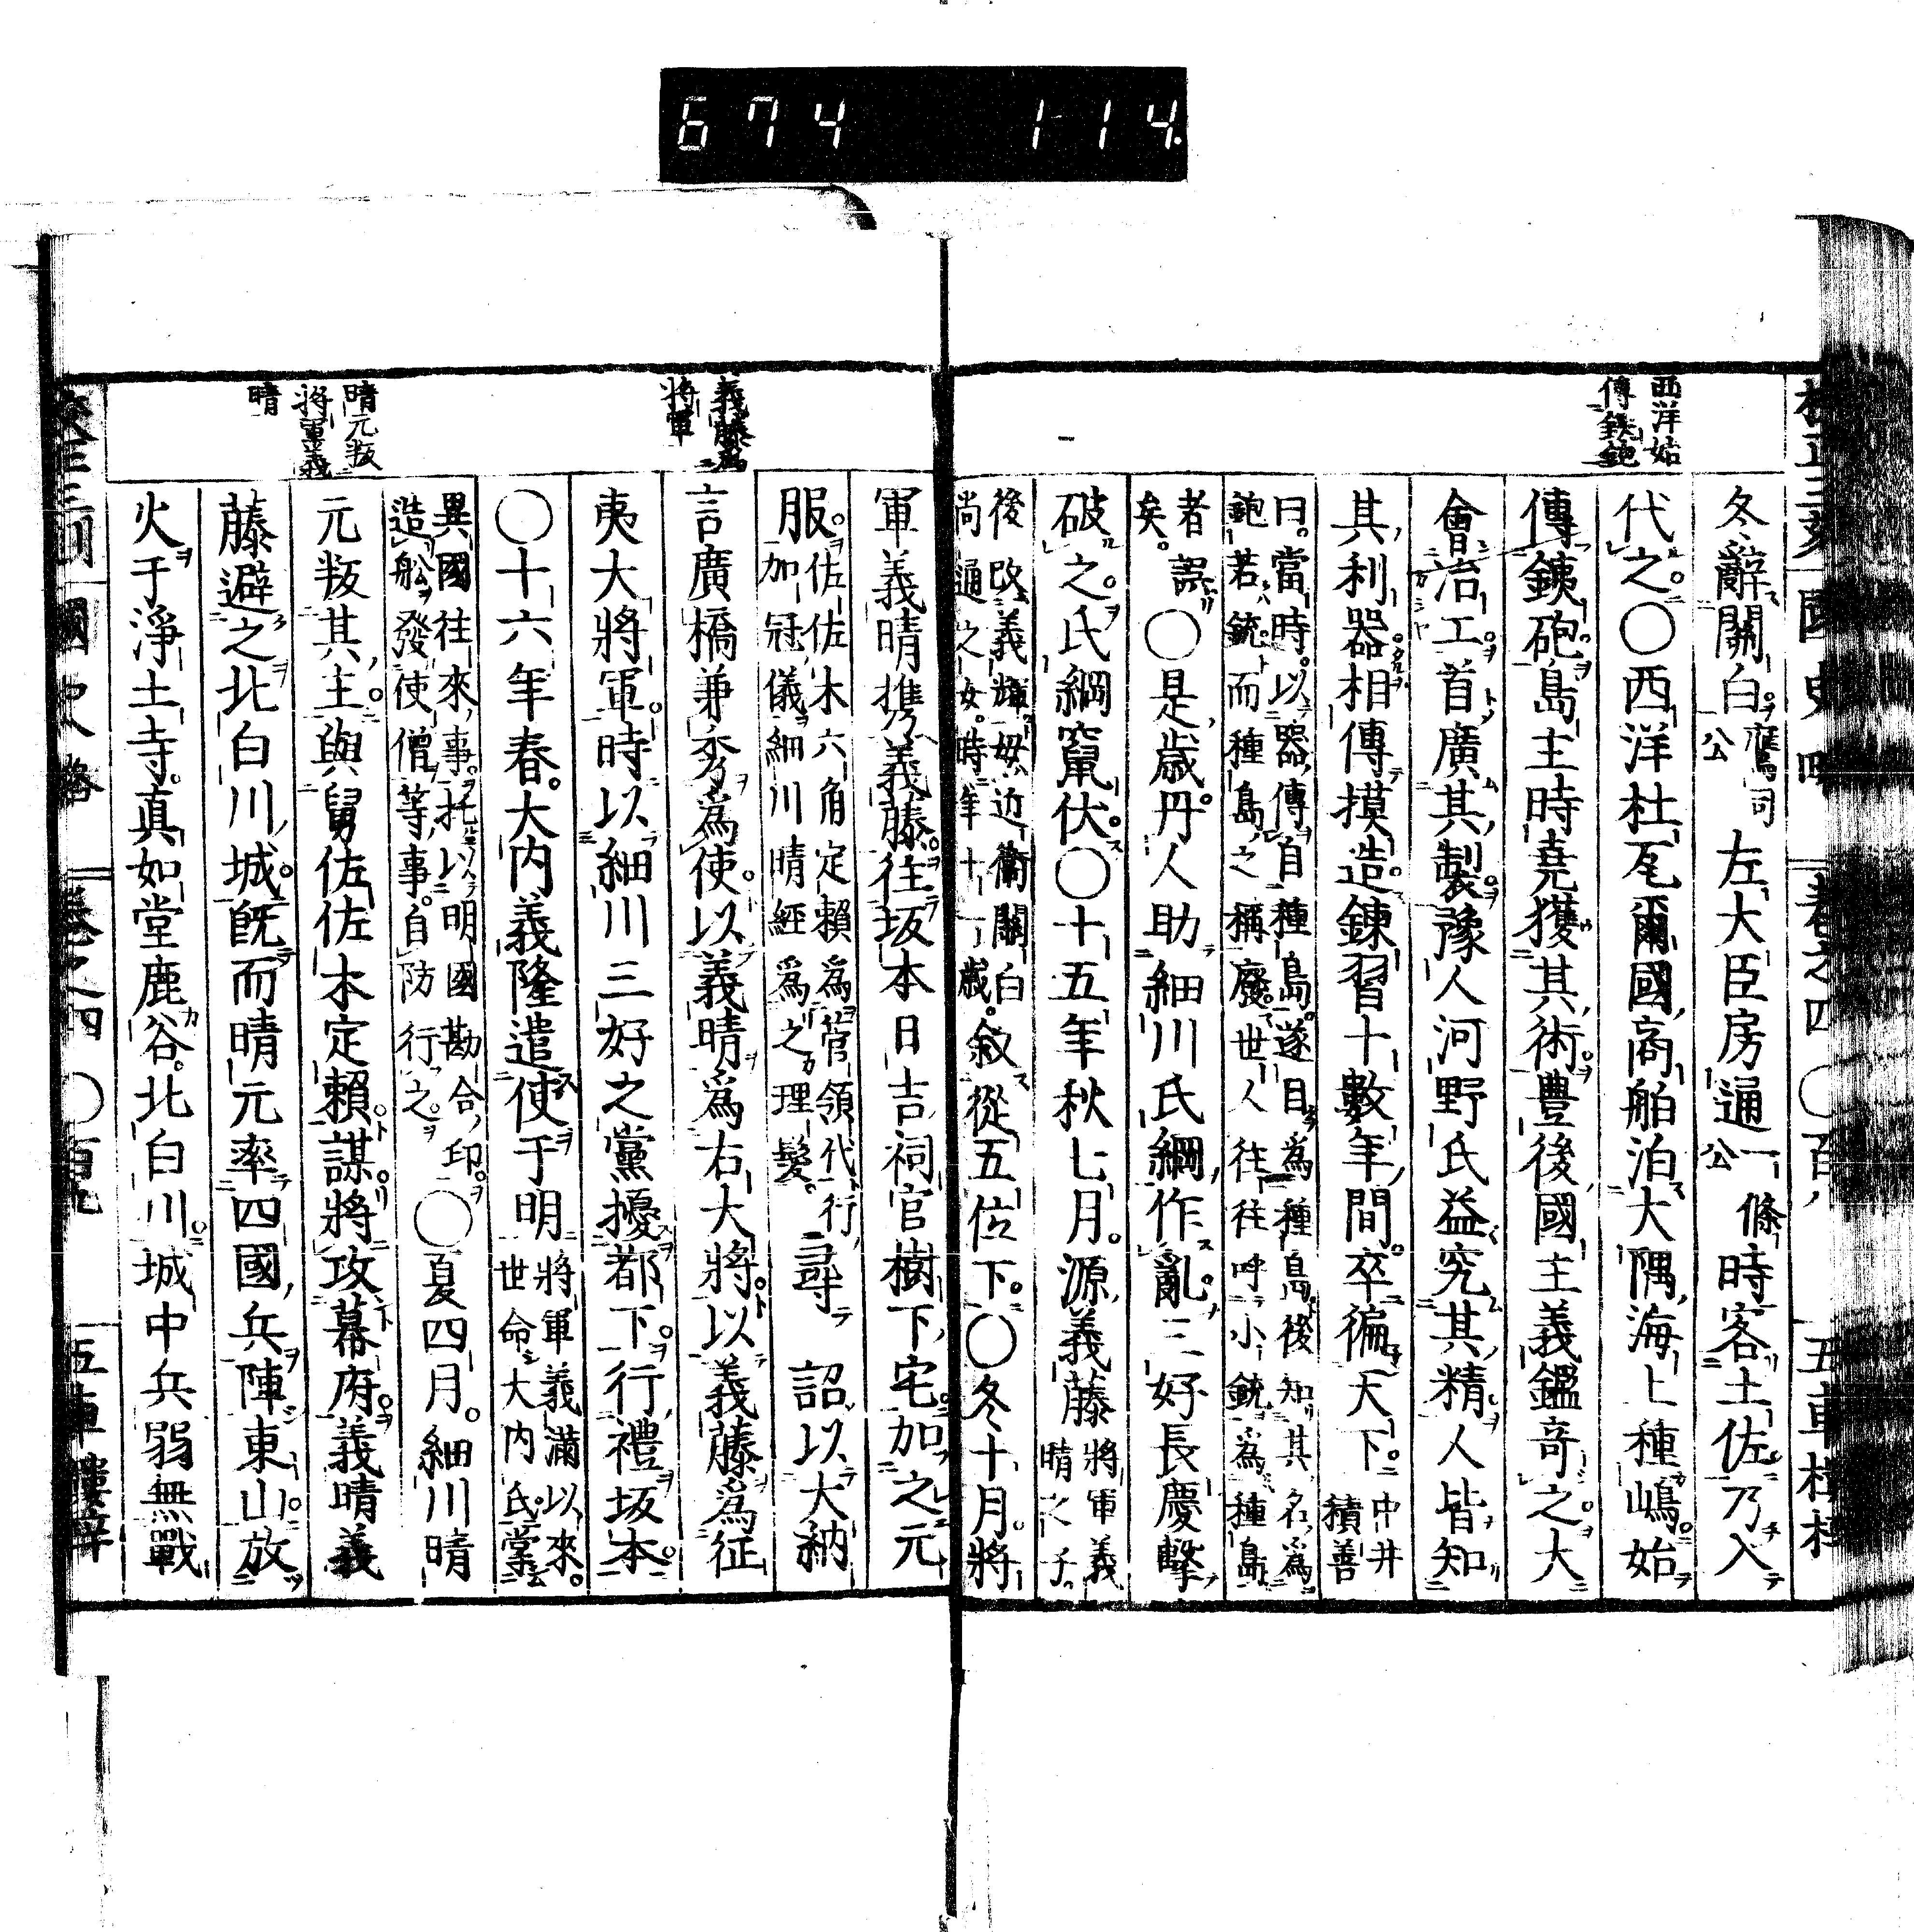 674 114.
西洋始
傳鉄鉋
冬辭關白鷹司公左大臣房通一條公時客土佐乃入
代之〇西洋杜瓦爾國商舶泊大隅海上種嶋始
傳銕砲島主時堯獲其術豊後國主義鑑奇之大
會冶工首廣其製豫人河野氏益究其精人皆知
其利器相傳摸造鍊習十數年間卒徧天下中井積善
曰當時以器傳自種島遂目爲種島後知其名爲
鉋若銃而種島之稱廢世人往往呼小銃爲種島
者誤矣〇是歳丹人助細川氏綱作亂三好長慶擊
破之氏綱竄伏〇十五年秋七月源義藤將軍義晴之子
後改義輝母近衞關白
尚通之女時年十一歳敘從五位下〇冬十月將
義藤爲
將軍
晴元叛
將軍義
晴
軍義晴携義藤往坂本日吉祠官樹下宅加之元
服佐佐木六角定賴爲管領代行
加冠儀細川晴經爲之理髮尋詔以大納
言廣橋兼秀爲使以義晴爲右大將以義藤爲征
夷大將軍時以細川三好之黨擾都下行禮坂本
〇十六年春大内義隆遣使于明將軍義滿以來
世命大内氏掌
異國往來事托以明國勘合印
造舩發使僧等事自防行之〇夏四月細川晴
元叛其主與舅佐佐木定賴謀將攻幕府義晴義
藤避之北白川城旣而晴元率四國兵陣東山放
火于淨土寺真如堂鹿谷北白川城中兵弱無戰